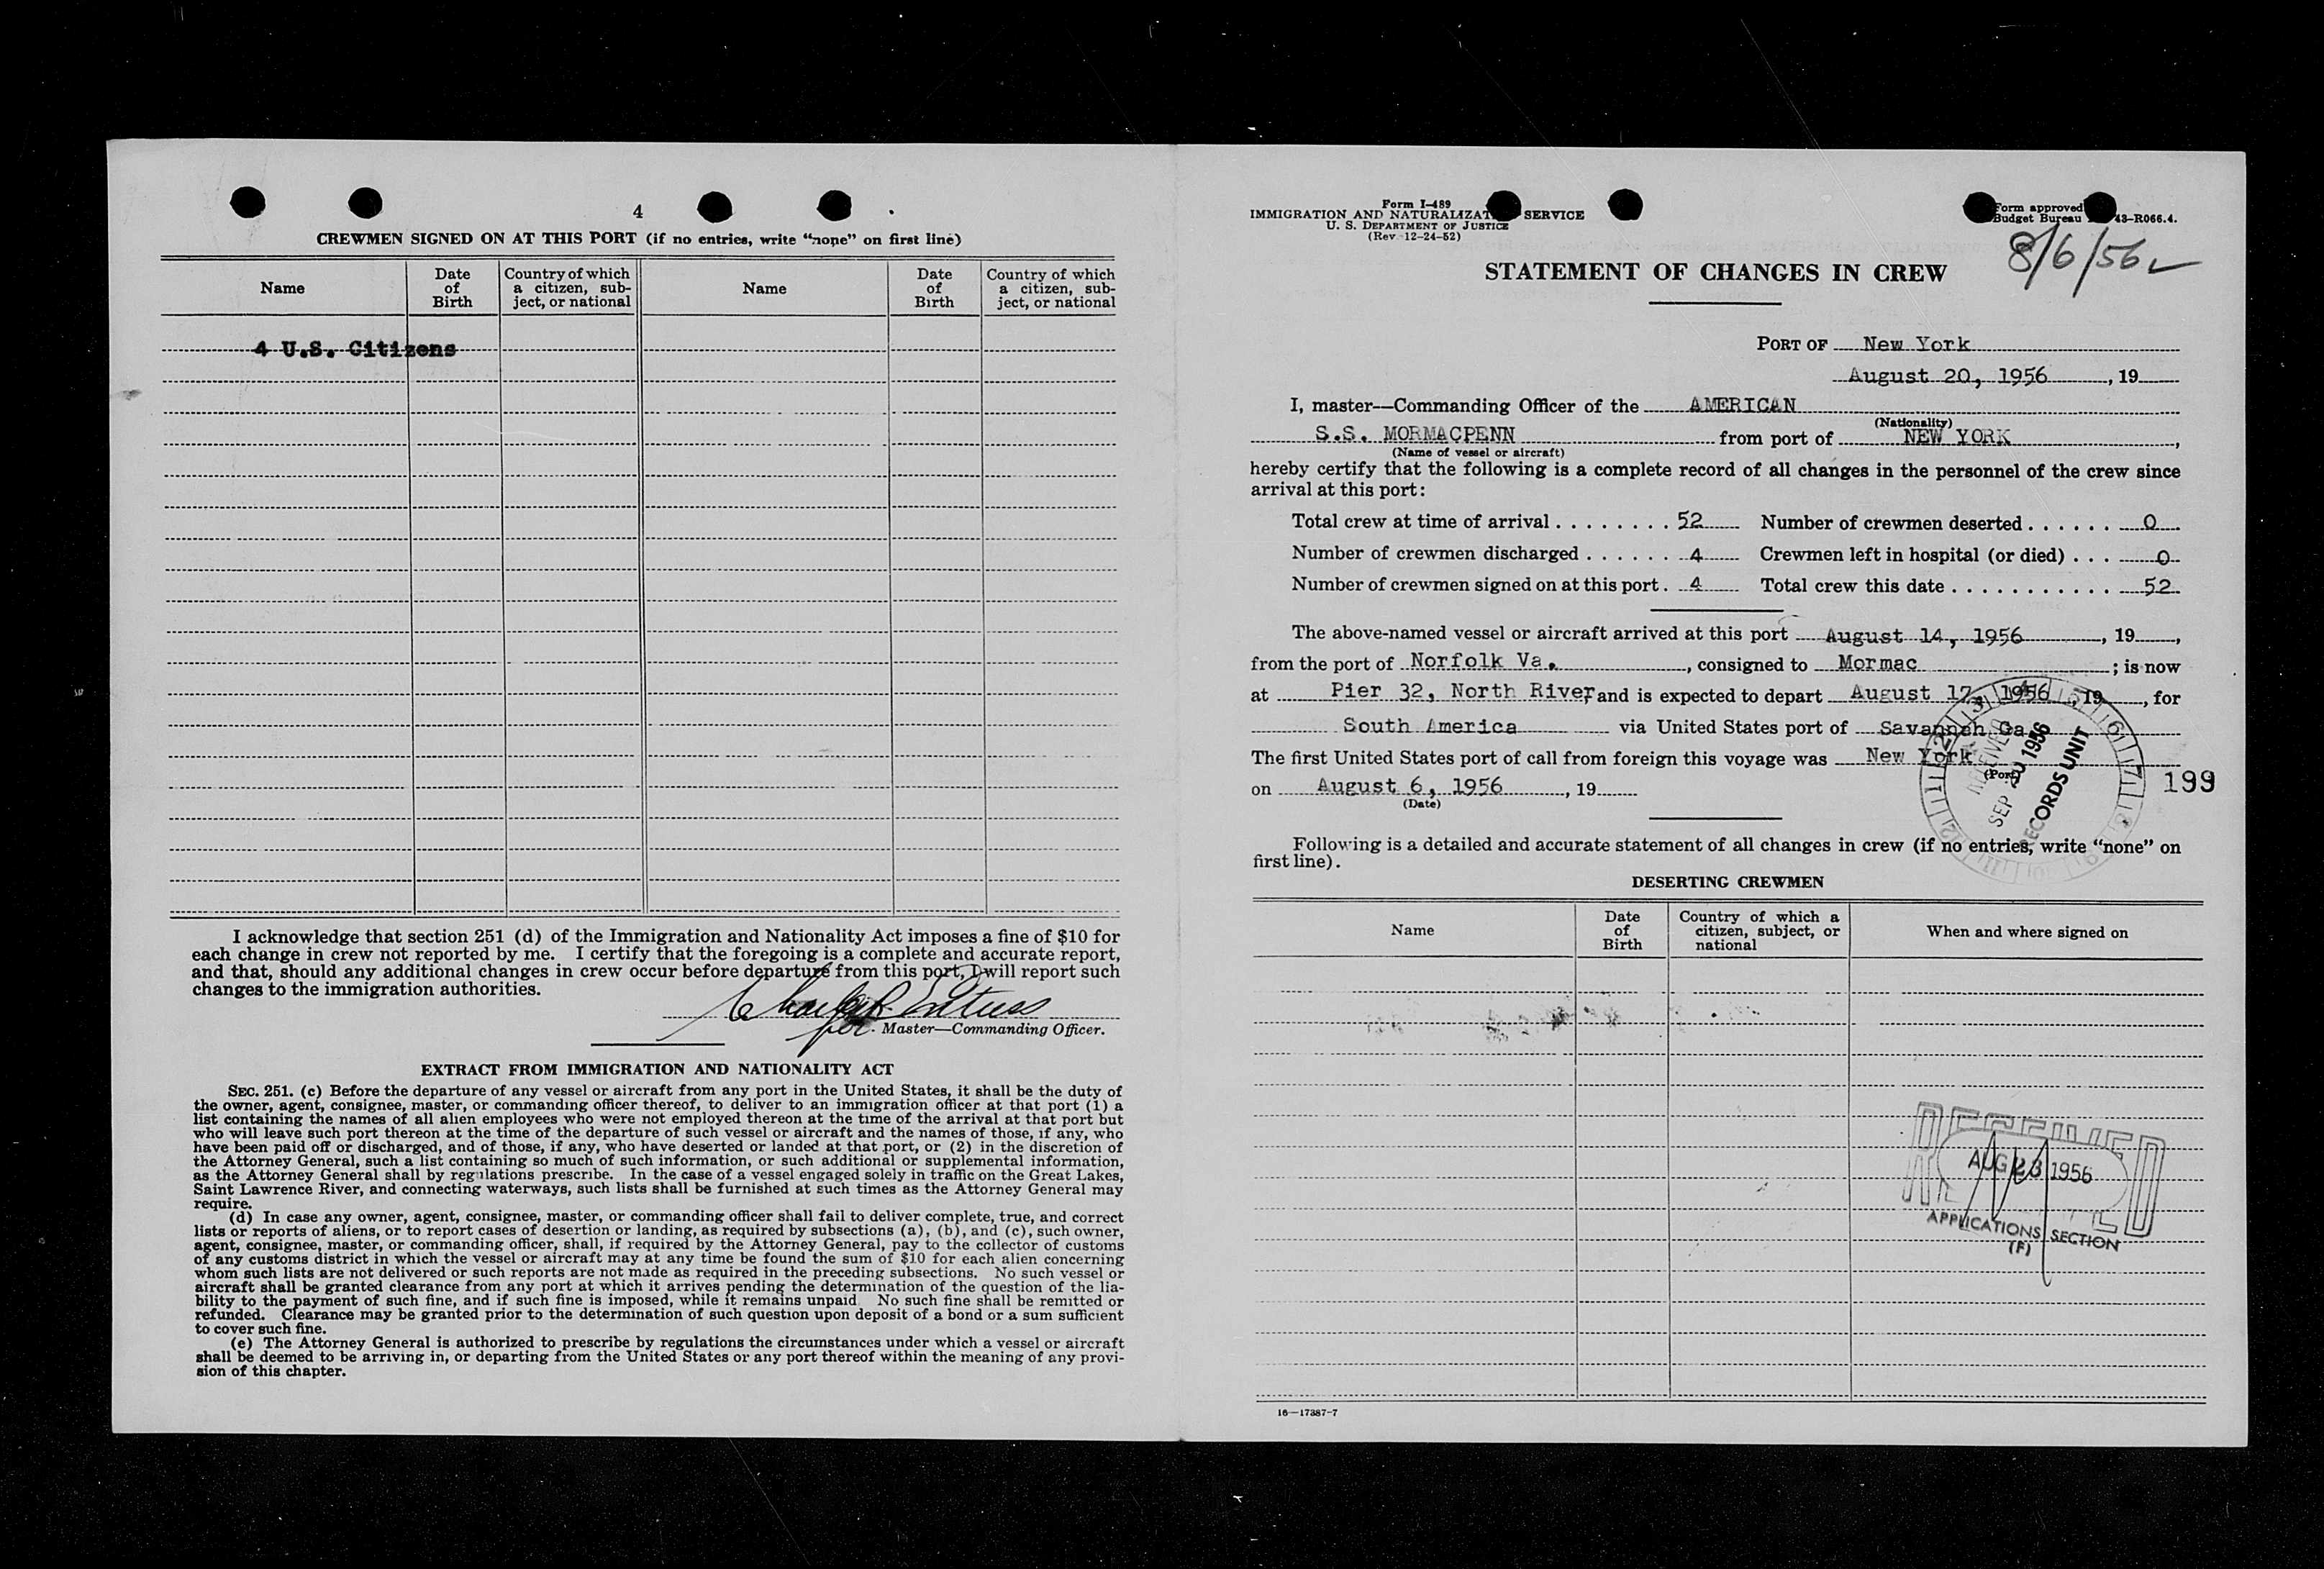 4
CREWMEN SIGNED ON AT THIS PORT (if no entries, write "none" on first line)
Name
Date of Birth
Country of which a citizen, subject, or national
Name
Date of Birth
Country of which a citizen, subject, or national
4 U.S. Citizens
I acknowledge that section 251 (d) of the Immigration and Nationality Act imposes a fine of $10 for
each change in crew not reported by me. I certify that the foregoing is a complete and accurate report,
and that, should any additional changes in crew occur before departure from this port, I will report such
changes to the immigration authorities.
for
Master—Commanding Officer.
EXTRACT FROM IMMIGRATION AND NATIONALITY ACT
SEC. 251. (c) Before the departure of any vessel or aircraft from any port in the United States, it shall be the duty of
the owner, agent, consignee, master, or commanding officer thereof, to deliver to an immigration officer at that port (1) a
list containing the names of all alien employees who were not employed thereon at the time of the arrival at that port but
who will leave such port thereon at the time of the departure of such vessel or aircraft and the names of those, if any, who
have been paid off or discharged, and of those, if any, who have deserted or landed at that port, or (2) in the discretion of
the Attorney General, such a list containing so much of such information, or such additional or supplemental information,
as the Attorney General shall by regulations prescribe. In the case of a vessel engaged solely in traffic on the Great Lakes,
Saint Lawrence River, and connecting waterways, such lists shall be furnished at such times as the Attorney General may
require.
(d) In case any owner, agent, consignee, master, or commanding officer shall fail to deliver complete, true, and correct
lists or reports of aliens, or to report cases of desertion or landing, as required by subsections (a), (b), and (c), such owner,
agent, consignee, master, or commanding officer, shall, if required by the Attorney General, pay to the collector of customs
of any customs district in which the vessel or aircraft may at any time be found the sum of $10 for each alien concerning
whom such lists are not delivered or such reports are not made as required in the preceding subsections. No such vessel or
aircraft shall be granted clearance from any port at which it arrives pending the determination of the question of the lia-
bility to the payment of such fine, and if such fine is imposed, while it remains unpaid No such fine shall be remitted or
refunded. Clearance may be granted prior to the determination of such question upon deposit of a bond or a sum sufficient
to cover such fine.
(e) The Attorney General is authorized to prescribe by regulations the circumstances under which a vessel or aircraft
shall be deemed to be arriving in, or departing from the United States or any port thereof within the meaning of any provi-
sion of this chapter.
Form I-489
IMMIGRATION AND NATURALIZAT SERVICE
U. S. DEPARTMENT OF JUSTICE
(Rev 12-24-52)
Form approved
Budget Bureau 43-R066.4.
8/6/56
STATEMENT OF CHANGES IN CREW
PORT OF New York
August 20, 1956, 19
I, master—Commanding Officer of the AMERICAN
(Nationality)
S.S. MORMACPENN from port of NEW YORK,
(Name of vessel or aircraft)
hereby certify that the following is a complete record of all changes in the personnel of the crew since
arrival at this port:
Total crew at time of arrival . . . . . . . . 52 Number of crewmen deserted . . . . . . 0
Number of crewmen discharged . . . . . . . 4 Crewmen left in hospital (or died) . . . 0
Number of crewmen signed on at this port . 4 Total crew this date . . . . . . . . . . . 52
The above-named vessel or aircraft arrived at this port August 14, 1956, 19,
from the port of Norfolk Va., consigned to Mormac ; is now
at Pier 32, North River, and is expected to depart August 17, 1956, 19, for
South America via United States port of Savannah Ga.
The first United States port of call from foreign this voyage was New York
(Port)
on August 6, 1956, 19
(Date)
RECEIVED
SEP 1956
RECORDS UNIT
199
Following is a detailed and accurate statement of all changes in crew (if no entries, write "none" on
first line).
DESERTING CREWMEN
Name
Date of Birth
Country of which a citizen, subject, or national
When and where signed on
RECEIVED
AUG 23 1956
APPLICATIONS SECTION
(F)
16—17387-7